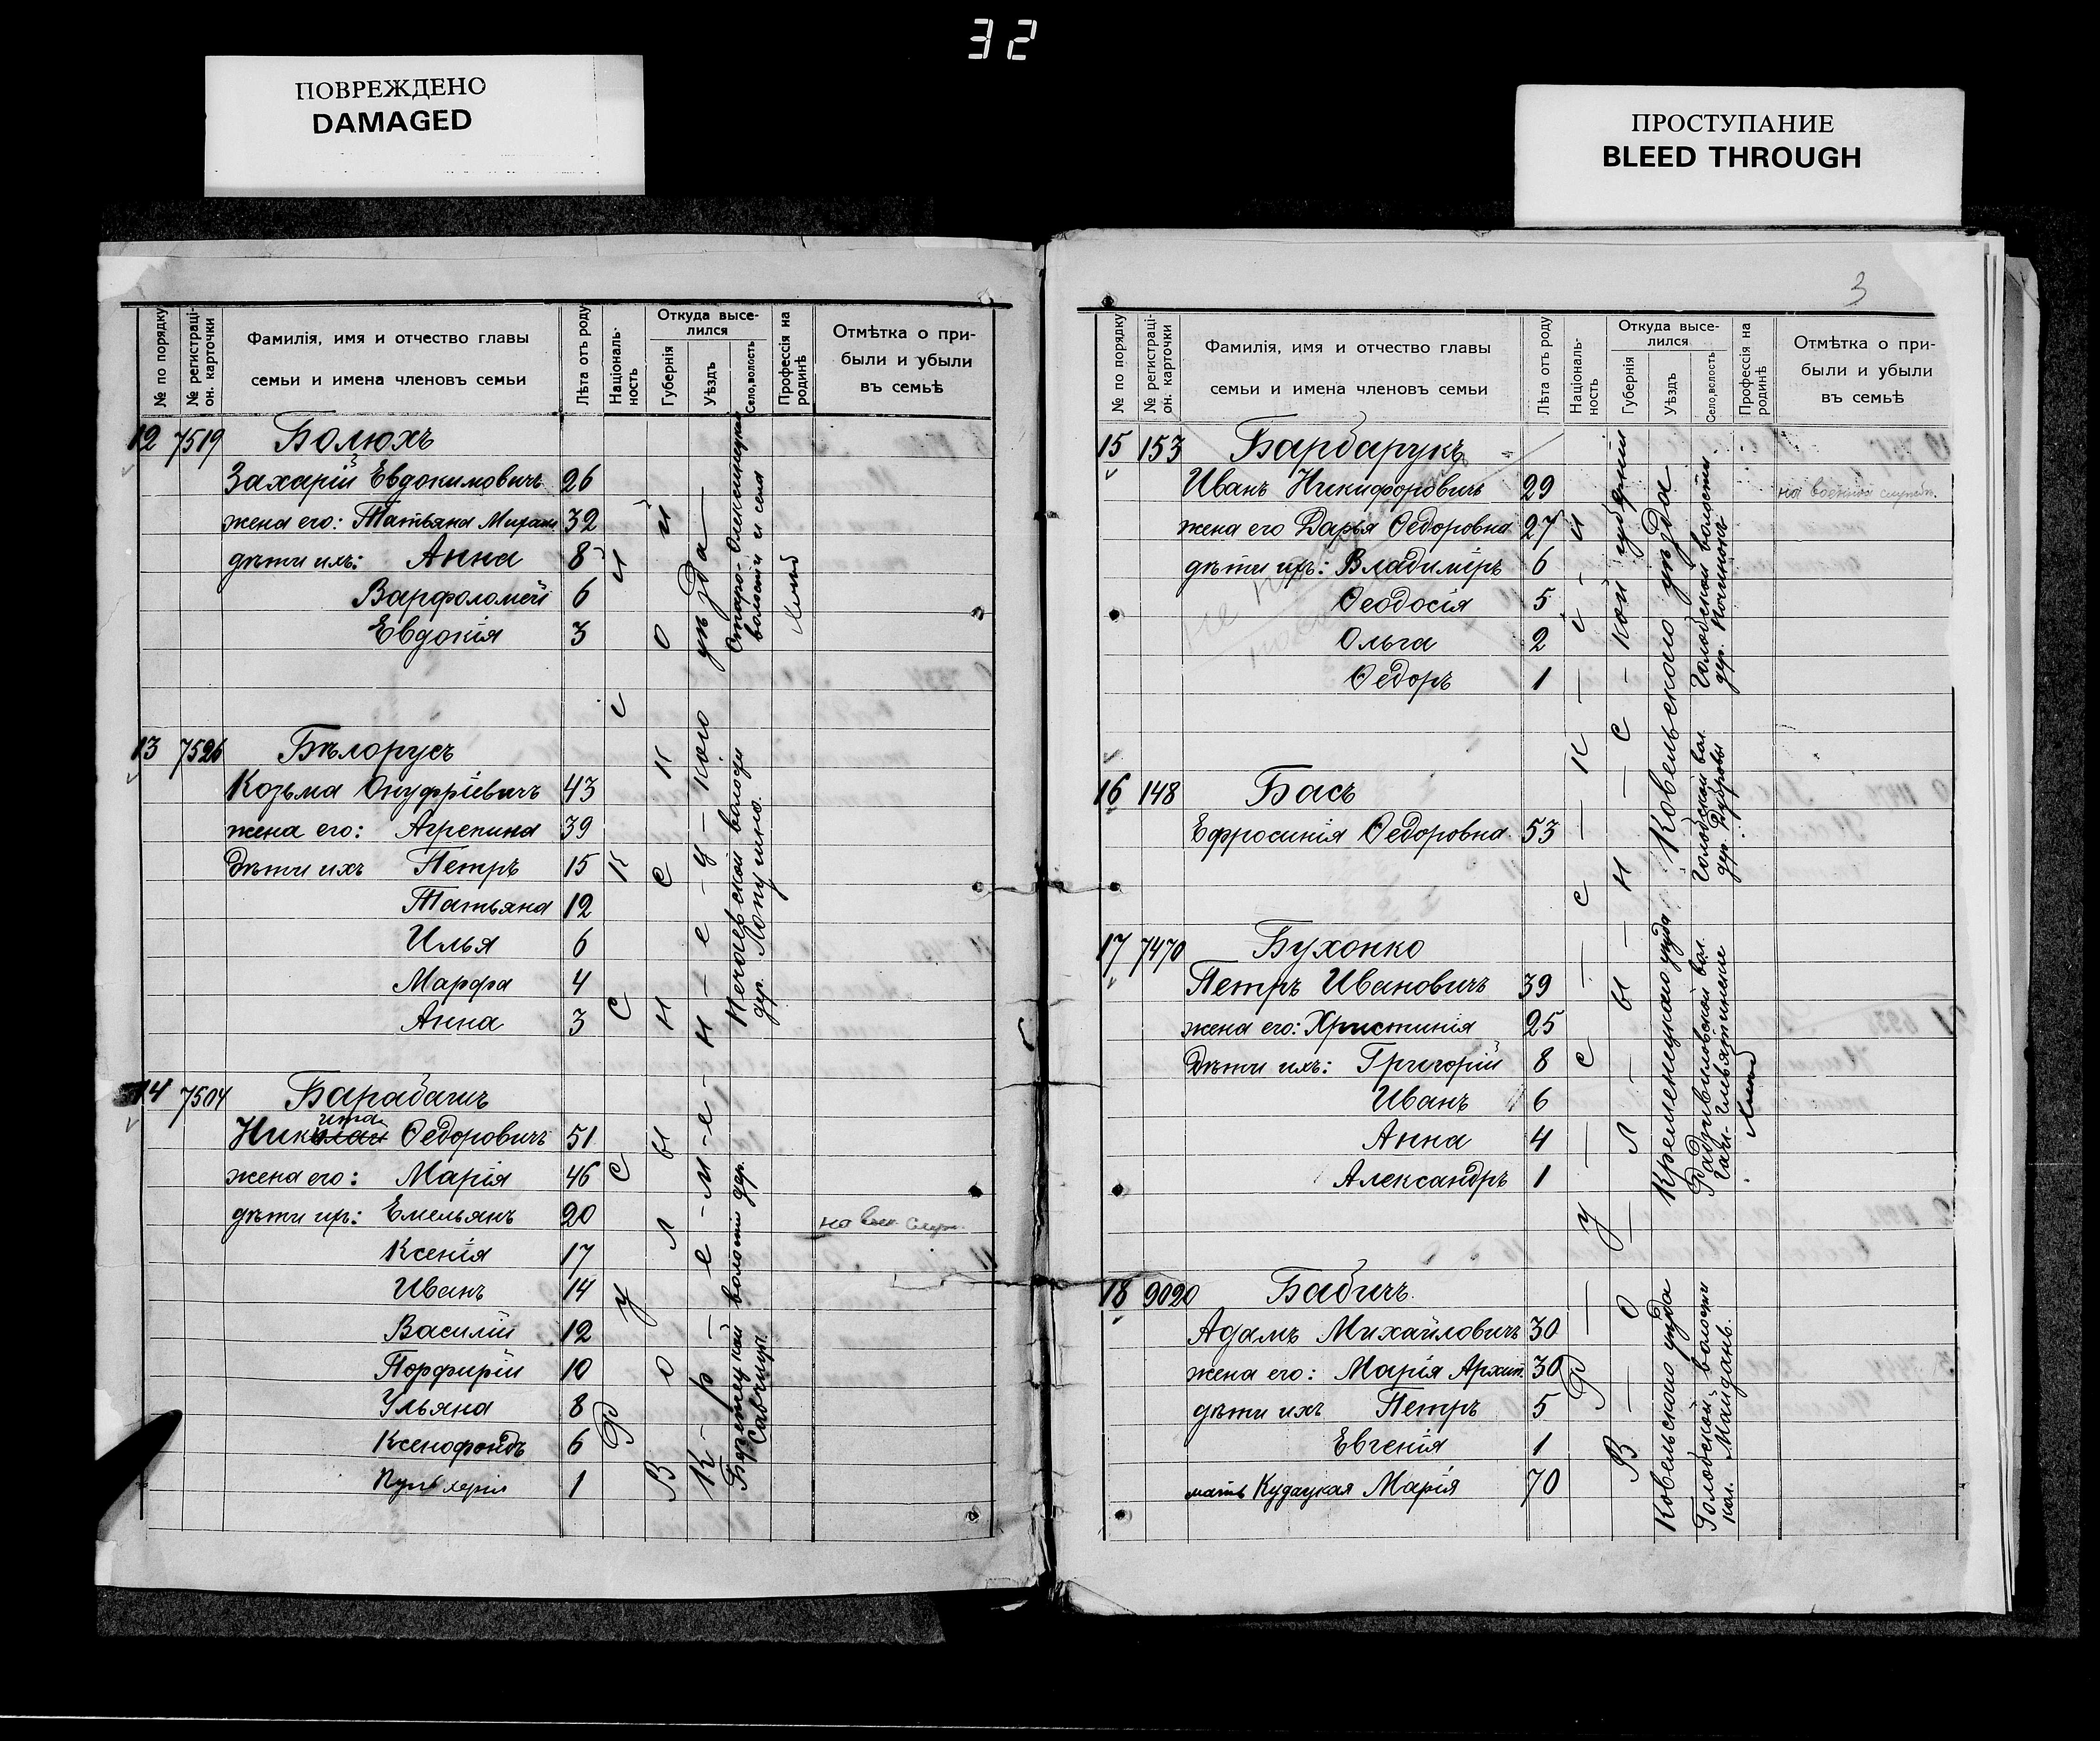 32
ПОВРЕЖДЕНО
DAMAGED
ПРОСТУПАНИЕ
BLEED THROUGH
№ по порядку
№ регистраці-он. карточки
Фамилія, имя и отчество главы
семьи и имена членовъ семьи
Лѣта отъ роду
Націоналъ-ность
Откуда высе-
лился
Губернія
Уѣздъ
Село, волость
Профессія на родинѣ
Отмѣтка о при-
были и убыли
въ семьѣ
12 7519 Болюхъ
Захарій Евдокимовичъ 26
жена его: Татьяна 32
дѣти ихъ: Анна 8
Варфоломей 6
Евдокія 3
13 7526 Бѣлорусъ
Козьма Онуфріевичъ 43
жена его: Агрепина 39
дѣти ихъ Петръ 15
Татьяна 12
Илья 6
Марфа 4
Анна 3
14 7504 Барабашъ
ита
Николай Федоровичъ 51
жена его: Марія 46
дѣти ихъ: Емельянъ 20 на воен. служ.
Ксенія 17
Иванъ 14
Василій 12
Порфирій 10
Ульяна 8
Ксенофонтъ 6
Пульхерія 1
Р у с с к с и
В о л ы н с к о й
К р - е - м - е - н - е - ц - кого уѣзда
Старо-Олексинецкой
волости и села
Почаевской волости
дер. Лопушно.
Бережецкой волости дер.
Савчицъ
3
№ по порядку
№ регистраці-он. карточки
Фамилія, имя и отчество главы
семьи и имена членовъ семьи
Лѣта отъ роду
Націоналъ-ность
Откуда высе-
лился
Губернія
Уѣздъ
Село, волость
Профессія на родинѣ
Отмѣтка о при-
были и убыли
въ семьѣ
15 153 Барбарукъ
Иванъ Никифоровичъ 29 на военной службѣ.
жена его Дарья Федоровна 27
дѣти ихъ: Владиміръ 6
Феодосія 5
Ольга 2
Федоръ 1
16 148 Басъ
Ефросинія Федоровна 53
17 7470 Бухонко
Петръ Ивановичъ 39
жена его: Христинія 25
дѣти ихъ: Григорій 8
Иванъ 6
Анна 4
Александръ 1
18 9020 Бабичъ
Адамъ Михайловичъ 30
жена его: Марія Архип. 30
дѣти ихъ Петръ 5
Евгенія 1
мать Кудацкая Марія 70
Р — у — с — с — к — і — и
В — о — л — ы — н — с — кой губерніи
Ковельского уѣзда
Голобской волости
Голобской вол.
Кременецкого уѣзда
Радзивиловской вол.
Ковельского уѣзда
Голобской волости
кол. Майданъ.